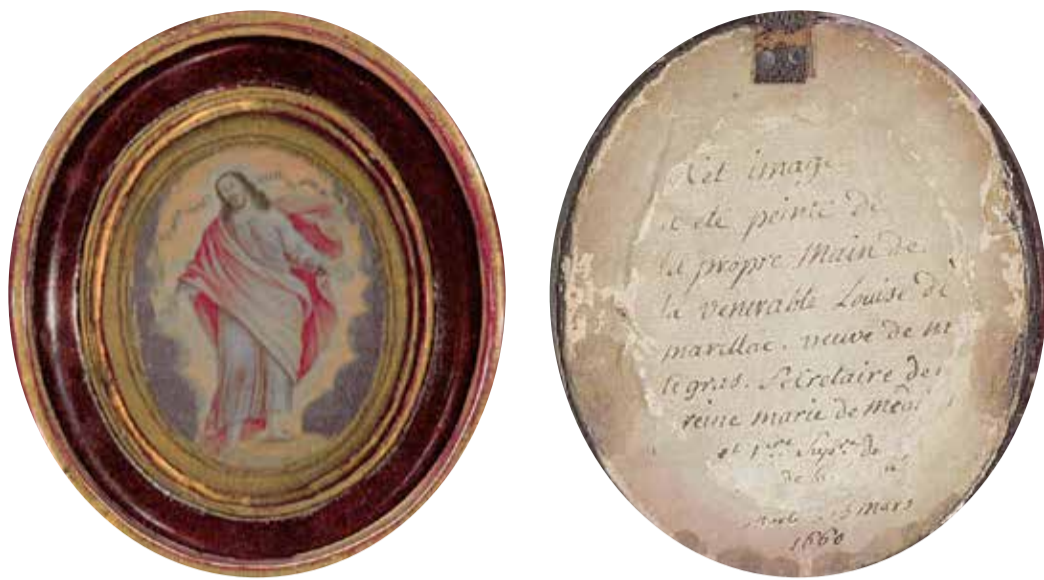 Cet image
a ete peinte de
la propre Main de
la venerable Louise de
marillac. veuve de mr
le gras. Secretaire de
reine marie de Medi
et 1ere Supre de
de la
Morte 15 Mars
1660